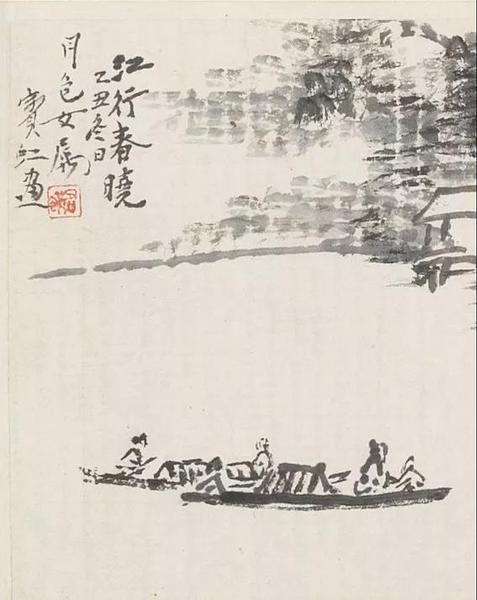 江行春曉
乙丑冬日
月色女屬
賓虹畫